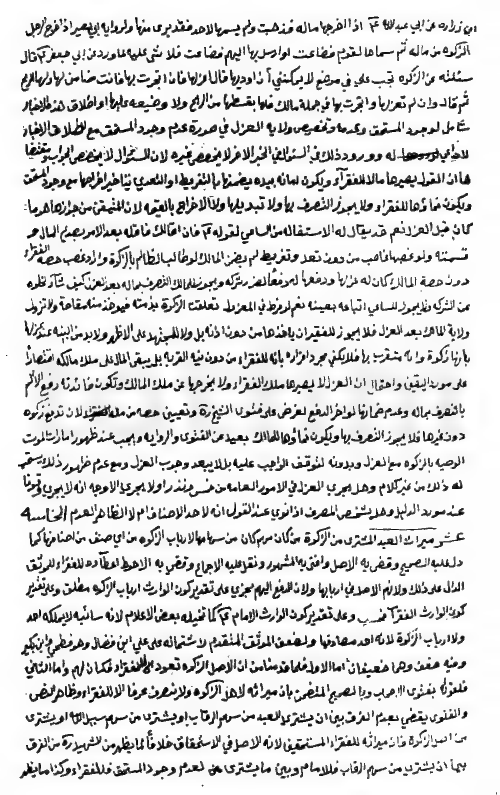 ابن زراره عن ابي عبد الله ع اذا اخرجها من ماله فذهبت ولم يسمها لاحد فقد برئ منها ولرواية ابي بصير اذا اخرج الرجل
الزكوة من ماله ثم سماها لقوم فضاعت او ارسل بها اليهم فضاعت فلا شئ عليه
سئلته عن الزكوة تجب علي في موضع لا يمكنني ان اوديها قال اعزلها فان اتجرت بها فانت ضامن لها ولها الربح
ثم قال وان لم تعزلها واتجرت بها في جملة مالك فلها بقسطها من الربح ولا وضيعة عليها واطلاق هذه الاخبار
شامل لوجود المستحق وعدمه وتخصيص ولاية العزل في صورة عدم وجود المستحق مع اطلاق الاخبار
لا داعي له وورود ذلك في السؤال في الخبر الاخر لا يخصص غيره لان السؤال لا يخصص الجواب
هذا ان العزل يصيرها مالا للفقراء ويكون امانة بيده يضمنها بالتفريط او التعدي بتاخير اخراجها مع وجود المستحق
ويكون نماؤها للفقراء ولا يجوز التصرف بها ولا تبديلها ولا الاخراج بالقيمة
كان قبل العزل نعم قد يقال له الاستقالة من الساعي لقوله ع فان اقالك فاقله بعد الامر بصدع المال
قسمته ولو غصبها غاصب من دون تعد وتفريط لم يضمن المالك لو طالب الظالم بالزكوة واراد غصب حصة الفقراء
دون حصة المالك كان له عزلها ودفعها له دفعا لضرر شركته ويجوز للمالك التصرف بماله بعد العزل كيف شاء
عن الشركة وهل يجوز للساعي اتباعه بعينه نعم لو فرط في المعزول تعلقت الزكوة بذمته
ولاية المالك بعد العزل فلا يجوز للفقير ان ياخذها من دون اذنه بل ولا للمجتهد على الاظهر ولا بد من النية عند
بانها زكوة وانه متقرب بها فلا يكفي مجرد افرازه بانه للفقراء من دون نية القربة بل يبقى المال على ملك مالكه اقتصارا
على مورد اليقين واحتمال ان العزل لا يصيرها ملك الفقراء ولا يخرجها عن ملك المالك وتكون فائدته رفع الاثم
بالتصرف بماله وعدم ضمانها لو اخر الدفع لغرض
دون غيرها فلا يجوز التصرف بها ويكون نماؤها للمالك بعيد عن الفتوى والرواية ويجب عند ظهور امارات الموت
الوصية بالزكوة مع العزل وبدونه لتوقف الواجب عليه بل لا يبعد وجوب العزل ومع عدم ظهور ذلك يستحب
له ذلك من غير كلام وهل يجري العزل في الامور العامة من خمس ونذر او لا يجري الاوجه انه لا يجري وقوفا
عند مورد الدليل وهل يتشخص المصرف اذا نوى عند العزل انه لاحد الاصناف ام لا الظاهر العدم الخامسة
عشر ميراث العبد المشترى من الزكوة من كان سهم كان من سهامها لارباب الزكوة من اي صنف من اصنافها كما
دل عليه الصحيح وقضى به الاصل وافتى به المشهور ونقل عليه الاجماع وتقضي به الاحوط اعطاؤه للفقراء للموثق
الدال على ذلك ولانهم الاصل في اربابها ولان الدفع اليهم مجزي على تقدير كون الوارث ارباب الزكوة مطلق وعلى تقدير
كون الوارث الفقراء فحسب وعلى تقدير كون الوارث الامام ع كما تخيله بعض الاعلام لانه سائبة لا يملكه احد
ولا ارباب الزكوة لانه احد مصارفها ولضعف الموثق المتقدم لاشتماله على علي ابن فضال وهو فطحي وابن بكير
وفيه ضعف وهما ضعيفان اما الاول فلما قدمناه من ان الاصل في الزكوة تعود الى الفقراء فكان لهم واما الثاني
فلقوته بفتوى الاصحاب وبالصحيح المتضمن بان ميراثه لاهل الزكوة ولا ينصرف عرفا الا للفقراء وظاهر النص
والفتوى يقضي بعدم الفرق بين ان يشتري العبد من سهم الرقاب او يشترى من سهم سبيل الله او يشترى
من اصل الزكوة فان ميراثه للفقراء المستحقين لانه الاصل في الاستحقاق خلافا لما يظهر من الشهيد ره من الفرق
بين ان يشترى من سهم الرقاب فللامام وبين ما يشترى من لعدم وجود المستحق فللفقراء وكذا ما يظهر